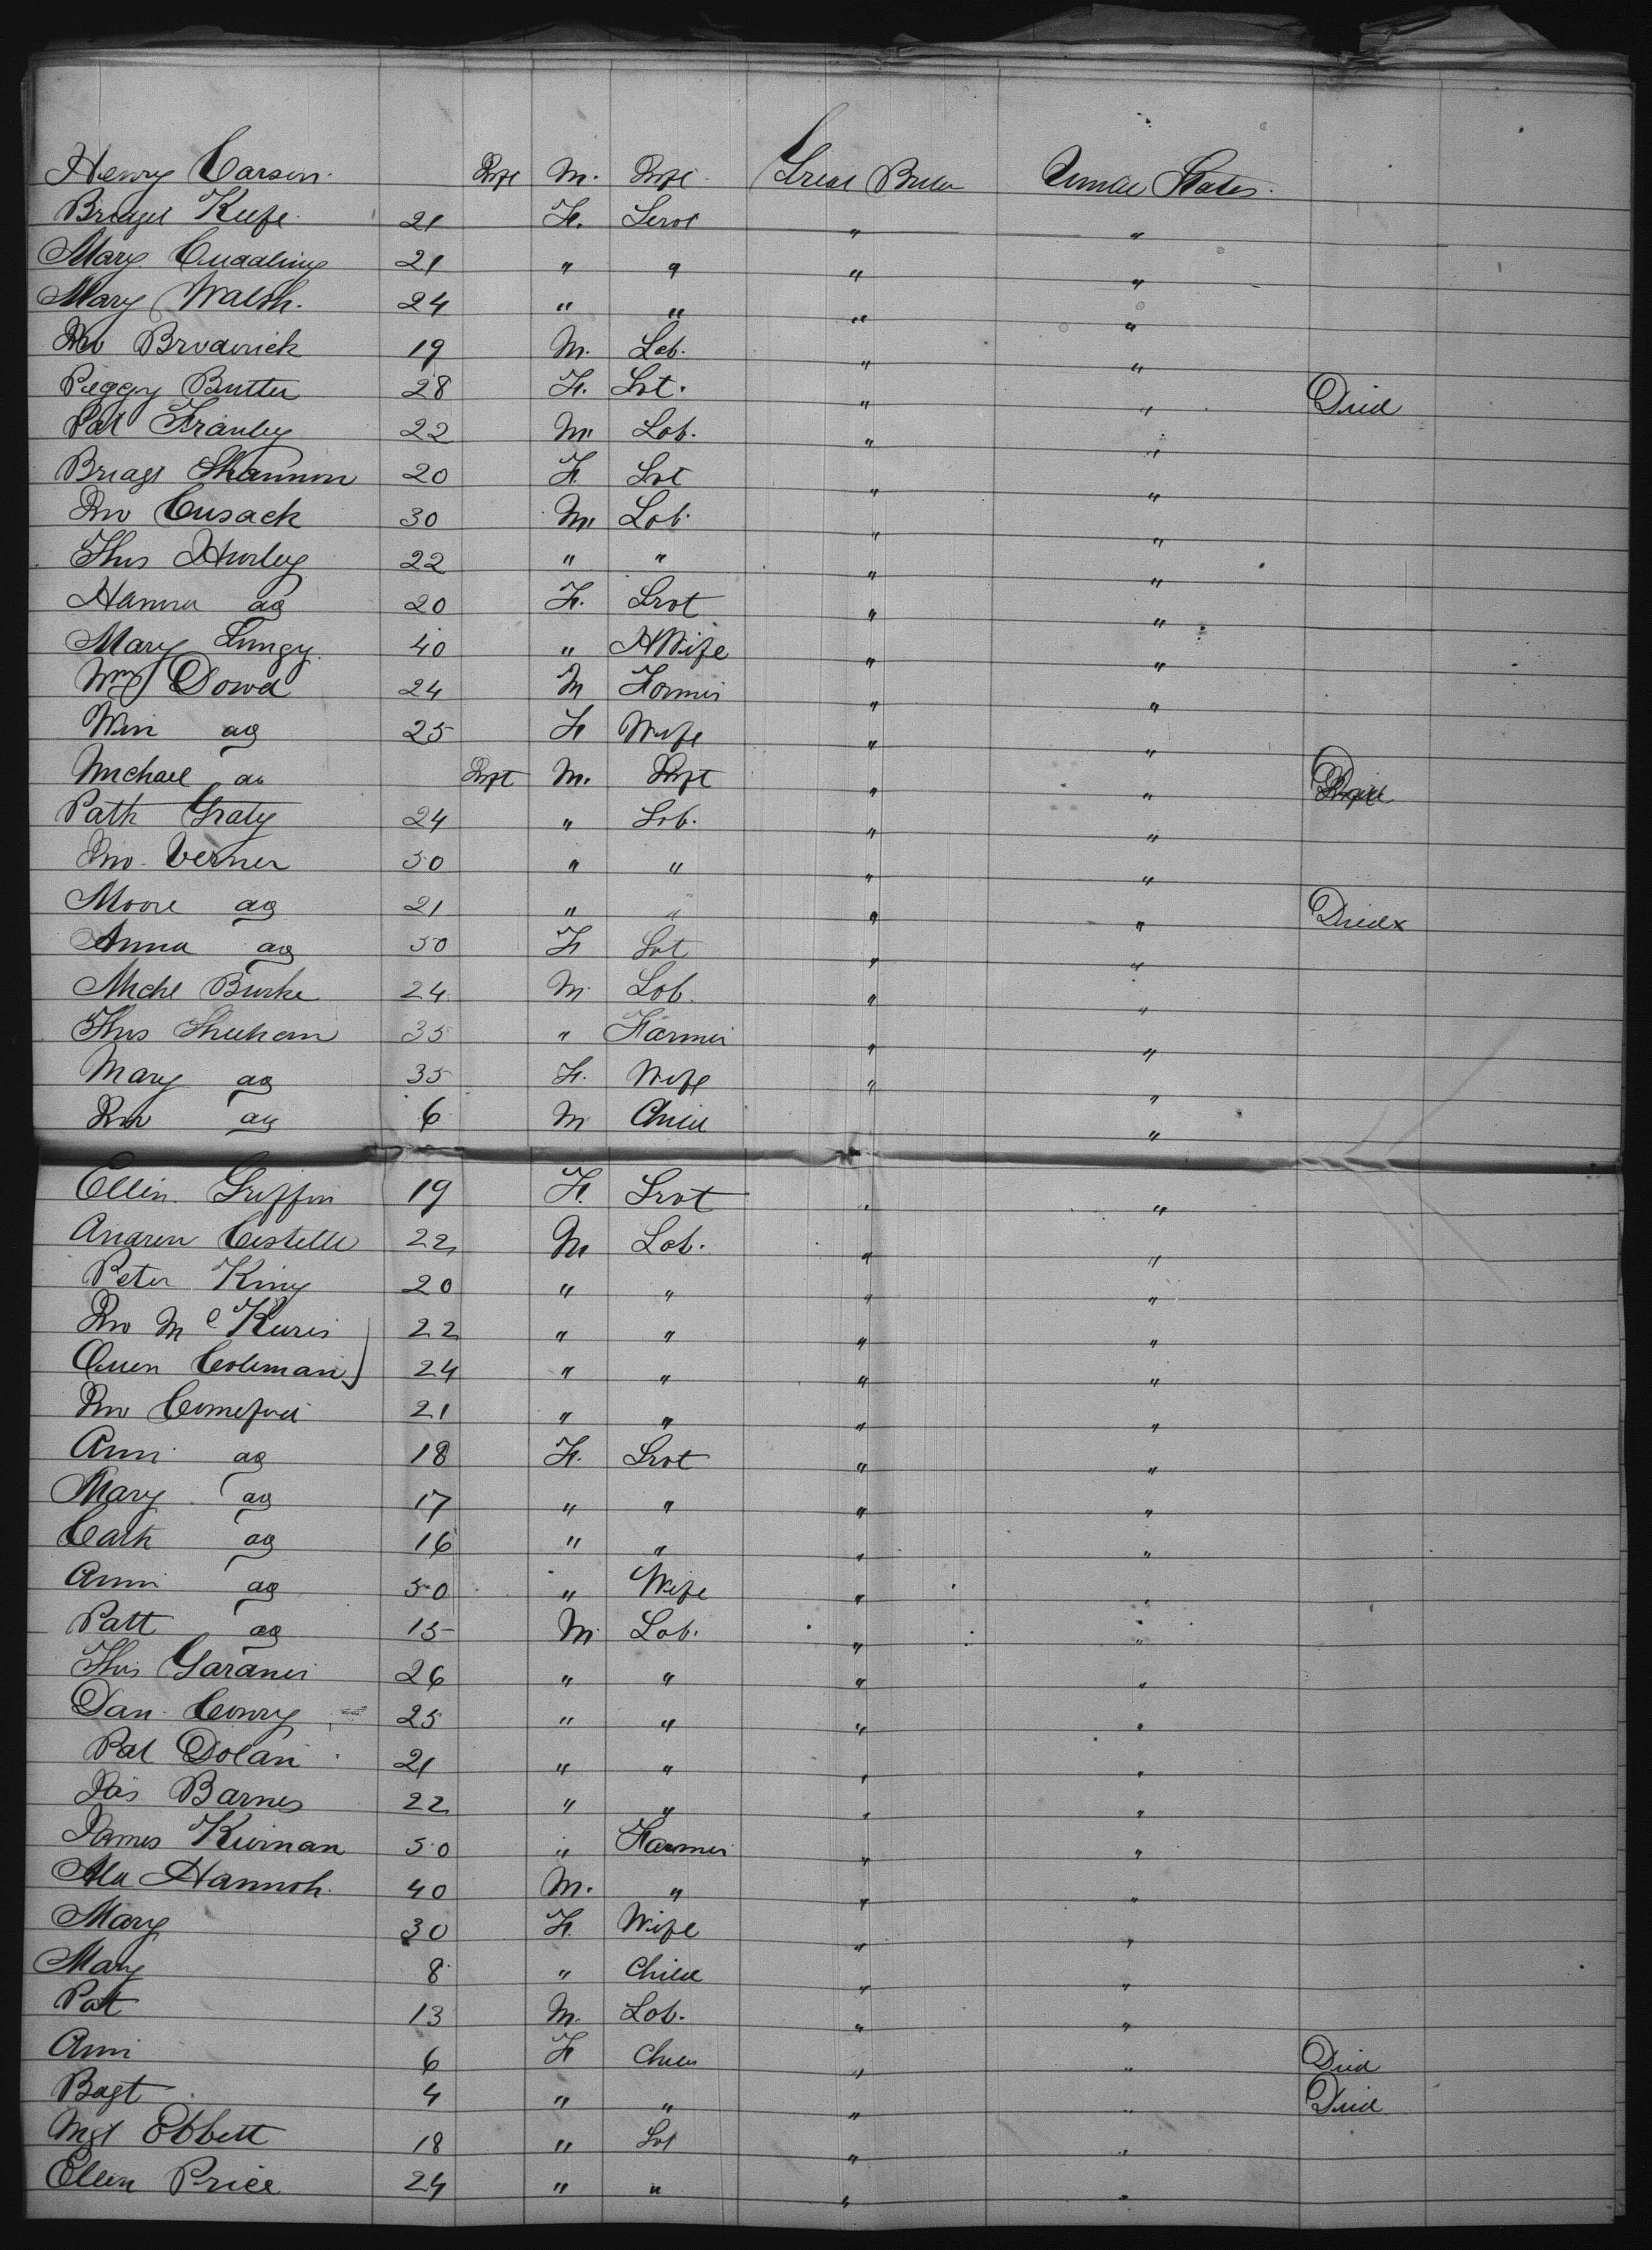 Henry Carson Inft M. Inft Great Britn United States
Bridget Keefe 21 F. Servt " "
Mary 21 " " " "
Mary Walsh. 24 " " " "
Jno Broderick 19 M. Lab. " "
Peggy Butter 28 F. Svt. " " Died
Pat 22 M Lab. " "
Bridgt Shannon 20 F. Svt " "
Jno Cusack 30 M Lab. " "
Thos Hurley 22 " " " "
Hanna do 20 F. Srvt " "
Mary 40 " HWife " "
Wm Dowd 24 M Farmer " "
Win do 25 F Wife " "
Michael do Inft M. Inft " " Died
Patk Graty 24 " Lab. " "
Jno. Verner 50 " " " "
Moore do 21 " " " " Died x
Anna do 50 F Svt " "
Michl Burke 24 M Lab. " "
Thos Sheehan 35 " Farmer " "
Mary do 35 F. Wife " "
Jno do 6 M Child "
Ellen Griffin 19 F. Srvt " "
Andrew Costello 22 M Lab. " "
Peter King 20 " " " "
Jno Mc 22 " " " "
Owen Coleman 24 " " " "
Jno Comeford 21 " " " "
Ann do 18 F. Srvt " "
Mary do 17 " " " "
Cath do 16 " " " "
Ann do 50 " Wife " "
Patt do 15 M Lab. " "
Thos Gardner 26 " " " "
Dan Conry 25 " " " "
Pat Dolan 21 " " " "
Jas Barnes 22 " " " "
James Kiernan 50 " Farmer " "
Hannah 40 M. " " "
Mary 30 F. Wife " "
Mary 8 " Child " "
Pat 13 M. Lab. " "
Ann 6 F Child " " Died
Bdgt 4 " " " " Died
Mgt Ebbett 18 " Svt " "
Ellen Price 24 " " " "